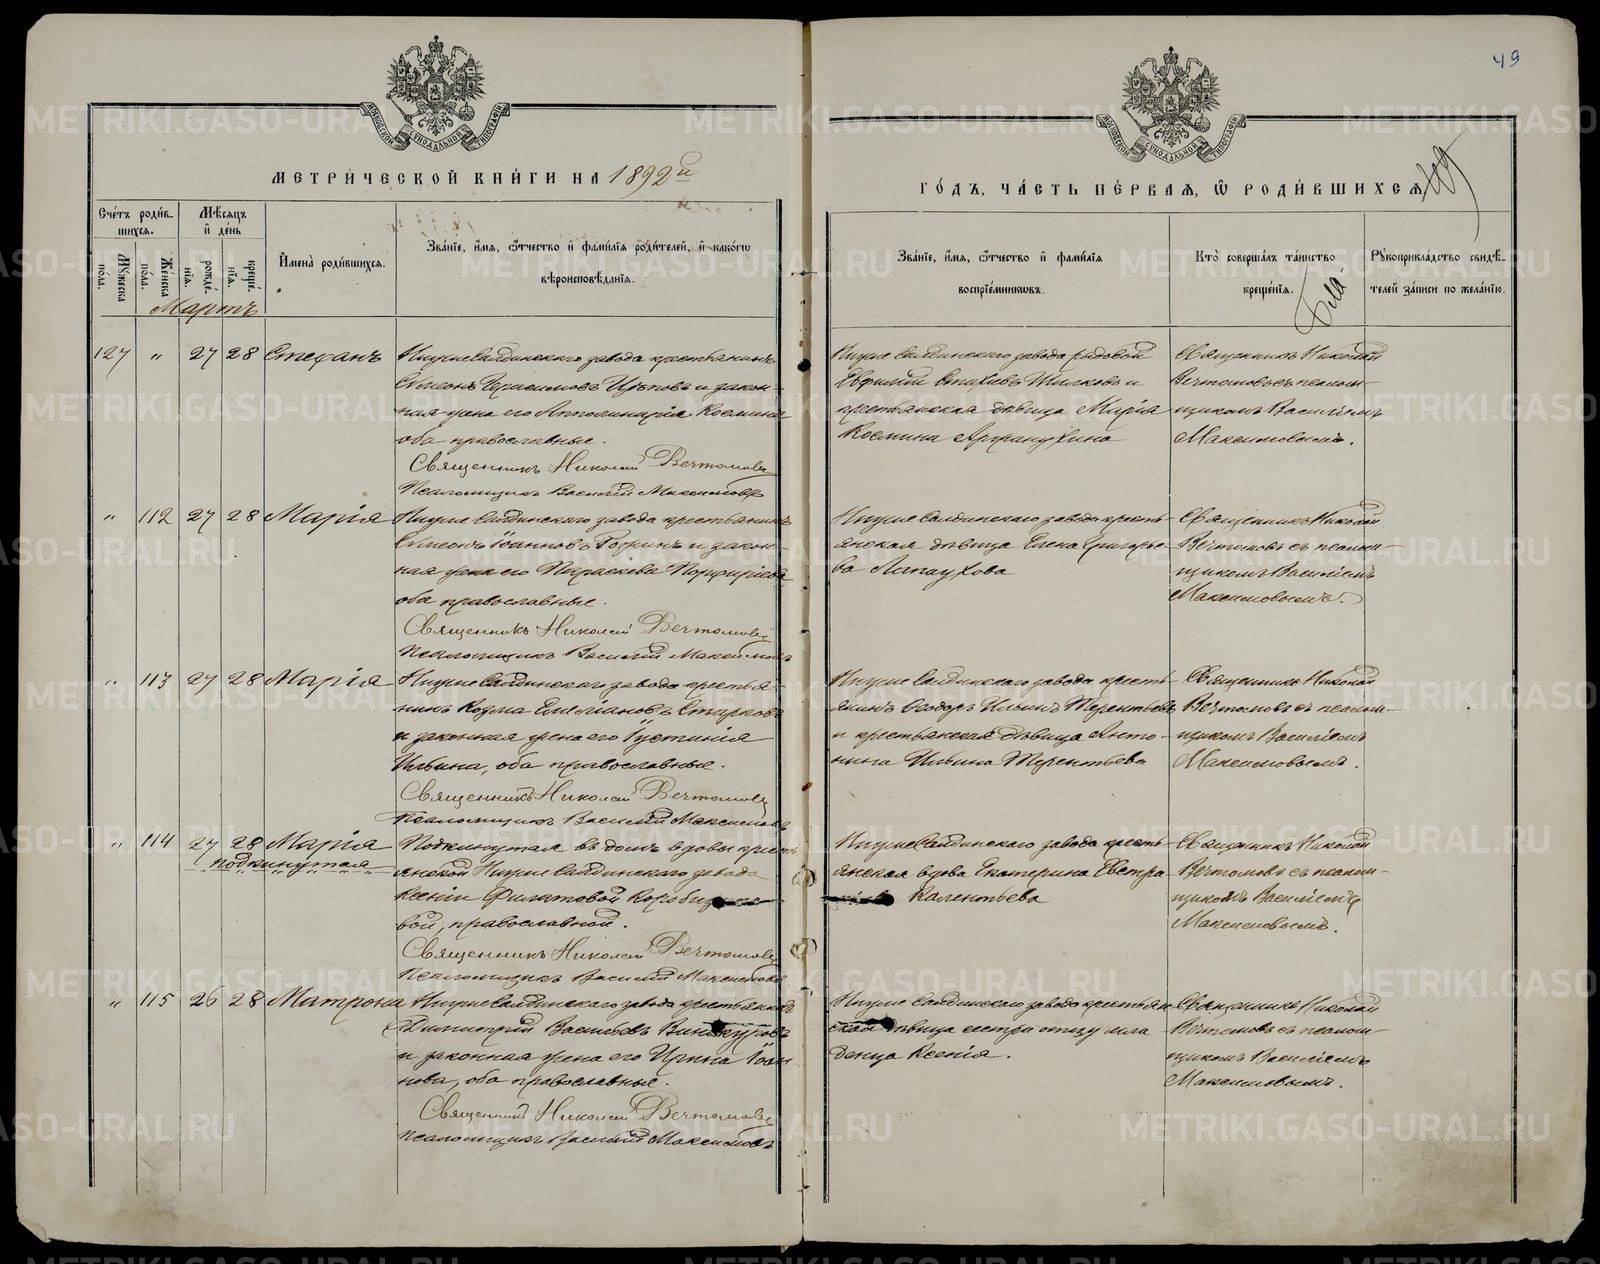 49
МЕТРИ́ЧЕСКОЙ КНИ́ГИ НА 1892й
ГО́ДЪ, ЧА́СТЬ ПЕ́РВАЯ, Ѡ РОДИ́ВШИХСЯ
Счетъ роди́в-
шихся.
Мѣсяцъ
и҆ де́нь
Мꙋжеска
пола.
Женска
пола.
рожде́-
нїя.
креще́-
нїя.
И҆мена̀ роди́вшихся.
Зва́нїе, и҆́мя, ѻ҆́тчество и҆ фамилїя роди́телей, и҆ како́гѡ
вѣроисповѣ́данїя.
Зва́нїе, и҆́мя, ѻ҆́тчество и҆ фами́лїя
воспрїе́мникѡвъ.
Кто̀ соверша́лъ та́инство
креще́нїя.
Рꙋкоприкла́дство свидѣ́-
телей за́писи по жела́нїю.
Мартъ
127 " 27 28 Стефанъ
Нижне Салдинскаго завода крестьянинъ
Симеонъ Герасимовъ Цѣповъ и закон-
ная жена его Апполинарія Космина
оба православные.
Священникъ Николай Вечтомовъ
Псаломщикъ Василій Максимовъ
Нижне Салдинскаго завода рядовой
Евфимій Стахіевъ Шилковъ и
крестьянская дѣвица Марія
Космина
Священникъ Николай
Вечтомовъ съ псалом-
щикомъ Василіемъ
Максимовымъ.
" 112 27 28 Марія
Нижне Салдинскаго завода крестьянинъ
Симеонъ Іоанновъ и закон-
ная жена его Параскева Порфиріева
оба православные.
Священникъ Николай Вечтомовъ
Псаломщикъ Василій Максимовъ
Нижне Салдинскаго завода кресть-
янская дѣвица Елена Григорье-
ва Лапаухова
Священникъ Николай
Вечтомовъ съ псалом-
щикомъ Василіемъ
Максимовымъ.
" 113 27 28 Марія
Нижне Салдинскаго завода крестья-
нинъ Козма Емеліановъ Старковъ
и законная жена его Іустинія
Ильина, оба православные.
Священникъ Николай Вечтомовъ
Псаломщикъ Василій Максимовъ
Нижне Салдинскаго завода кресть-
янинъ Ѳеодоръ Ильинъ Терентьевъ
и крестьянская дѣвица Анто-
нина Ильина Терентьева
Священникъ Николай
Вечтомовъ съ псалом-
щикомъ Василіемъ
Максимовымъ.
" 114 27 28 Марія
подкинутая
Подкинутая въ домъ вдовы кресть-
янской Нижне Салдинскаго завода
Ксеніи Филатовой
вой, православной.
Священникъ Николай Вечтомовъ
Псаломщикъ Василій Максимовъ
Нижне Салдинскаго завода кресть-
янская вдова Екатерина Евстра
Калентьева
Священникъ Николай
Вечтомовъ съ псалом-
щикомъ Василіемъ
Максимовымъ.
" 115 26 28 Матрона
Нижне Салдинскаго завода крестьянинъ
Димитрій Васильевъ Винокуровъ
и законная жена его Ирина Іоан-
нова, оба православные.
Священникъ Николай Вечтомовъ
Псаломщикъ Василій Максимовъ
Нижне Салдинскаго завода крестьян
ская дѣвица сестра отцу мла
денца Ксенія.
Священникъ Николай
Вечтомовъ съ псалом-
щикомъ Василіемъ
Максимовымъ.
METRIKI.GASO-URAL.RU